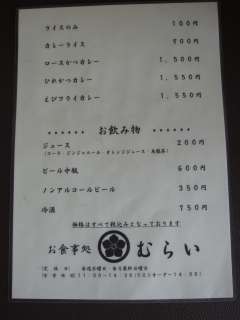 ライスのみ 100円
カレーライス 900円
ロースかつカレー 1,500円
ひれかつカレー 1,550円
えびフライカレー 1,550円
•••••• お飲み物 ••••••
ジュース 200円
(コーラ・ジンジャエール・オレンジジュース・烏龍茶)
ビール中瓶 600円
ノンアルコールビール 350円
冷酒 750円
価格はすべて税込みとなっております
お食事処 むらい